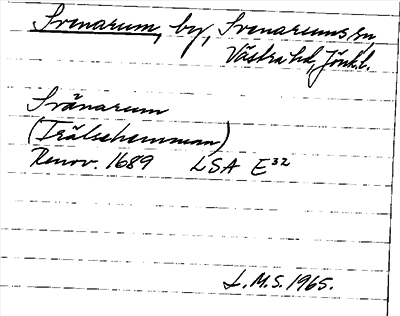 Svenarum, by, Svenarums sn,
Västra hd, Jönk.l.
Svänarum
(Frälsehemman)
Renov. 1689 LSA E³²
L.M.S. 1965.